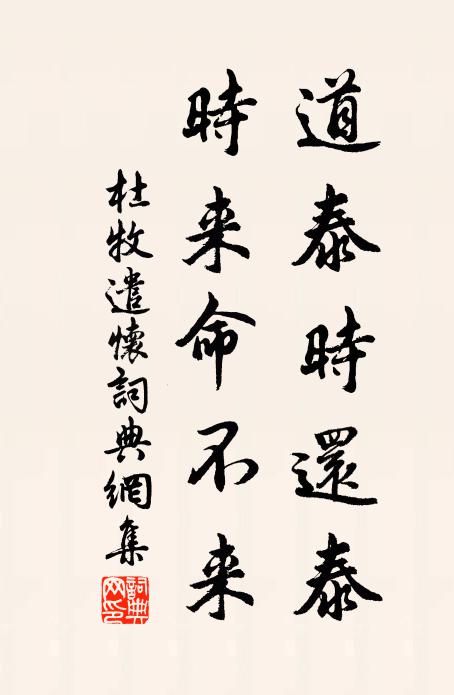 道泰時還泰
時来命不来
杜牧遣懷詞典網集
詞典网印